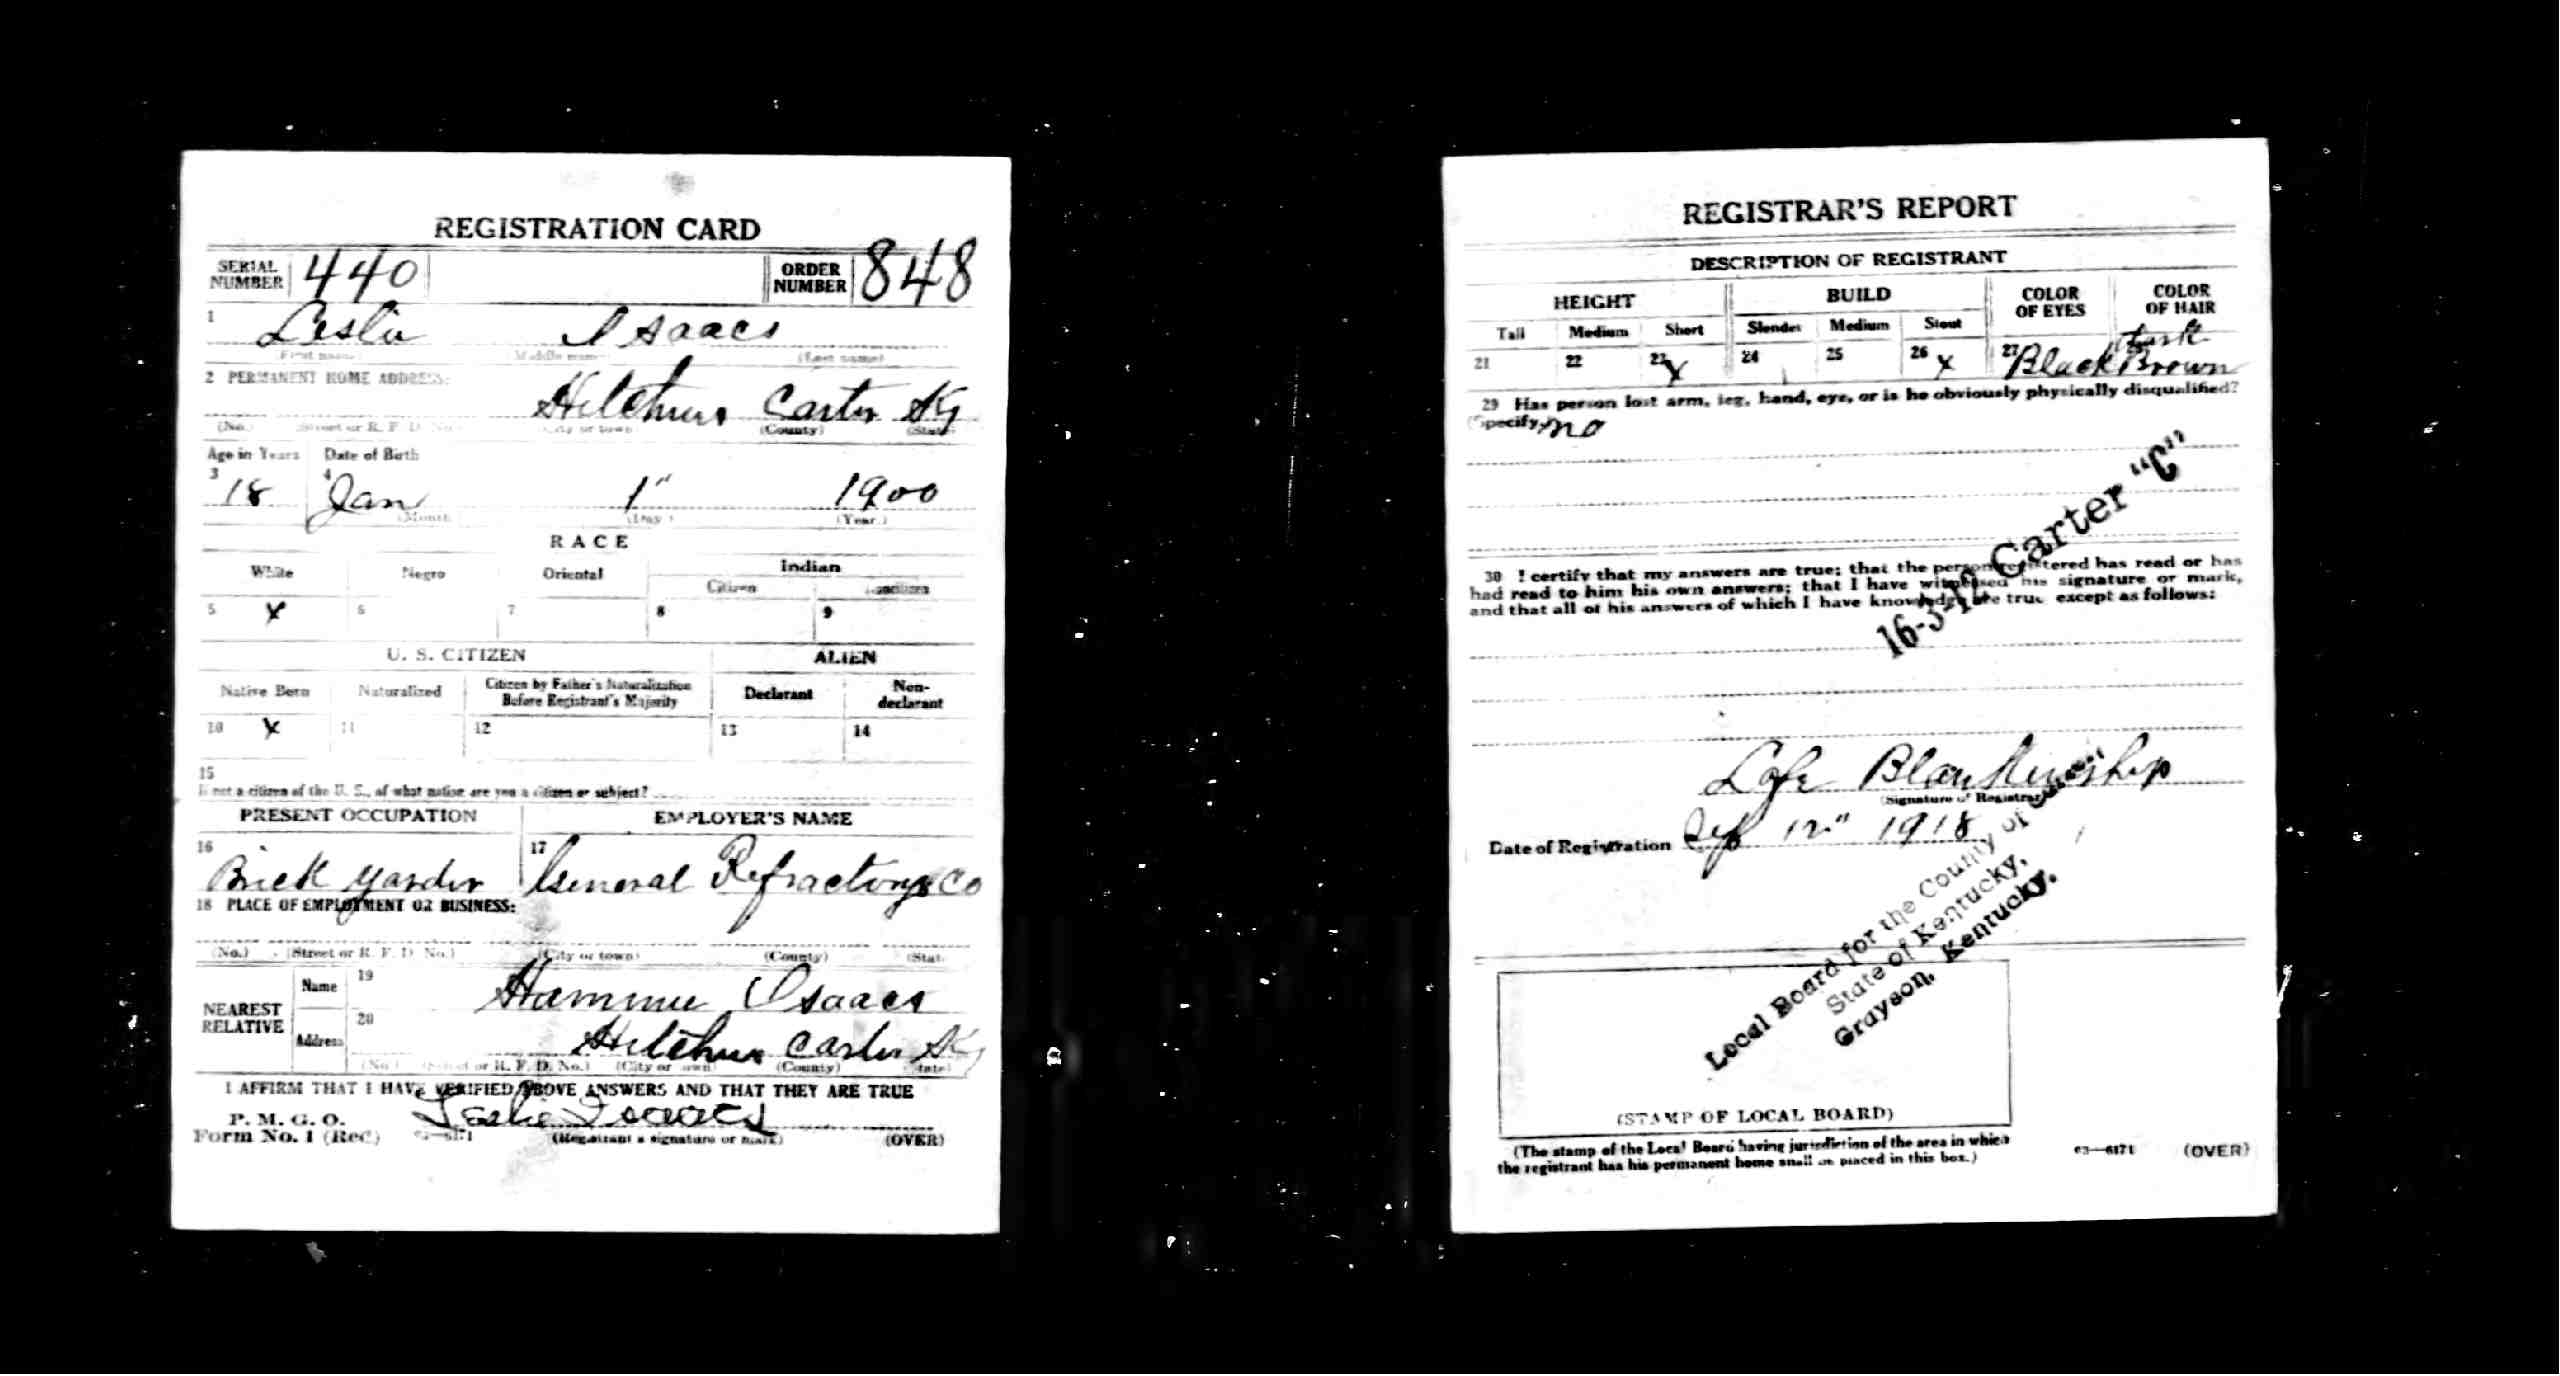 REGISTRATION CARD
SERIAL NUMBER 440 ORDER NUMBER 848
1 Leslie Isaacs
(First name) (Middle name) (Last name)
2 PERMANENT HOME ADDRESS:
Hitchins Carter Ky
(No.) (Street or R. F. D. No.) (City or town) (County) (State)
Age in Years Date of Birth
3 18 4 Jan 1" 1900
(Month) (Day) (Year)
RACE
White Negro Oriental Indian
Citizen
5 X 6 7 8 9
U. S. CITIZEN ALIEN
Native Born Naturalized Citizen by Father's Naturalization Before Registrant's Majority Declarant Non-declarant
10 X 11 12 13 14
15
If not a citizen of the U. S., of what nation are you a citizen or subject?
PRESENT OCCUPATION EMPLOYER'S NAME
16 Brick yarder 17 General Refractory Co
18 PLACE OF EMPLOYMENT OR BUSINESS:
(No.) (Street or R. F. D. No.) (City or town) (County) (State)
NEAREST RELATIVE Name 19 Isaacs
Address 20 Hitchins Carter Ky
(No.) (Street or R. F. D. No.) (City or town) (County) (State)
I AFFIRM THAT I HAVE VERIFIED ABOVE ANSWERS AND THAT THEY ARE TRUE
P. M. G. O.
Form No. 1 (Red) 03—6171 Leslie Isaacs
(Registrant's signature or mark) (OVER)
REGISTRAR'S REPORT
DESCRIPTION OF REGISTRANT
HEIGHT BUILD COLOR OF EYES COLOR OF HAIR
Tall Medium Short Slender Medium Stout
21 22 23 X 24 25 26 X 27 Black Dark Brown
29 Has person lost arm, leg, hand, eye, or is he obviously physically disqualified?
(Specify.) no
16-3-12 Carter "C"
30 I certify that my answers are true; that the person registered has read or has
had read to him his own answers; that I have witnessed his signature or mark,
and that all of his answers of which I have knowledge are true except as follows:
Lafe Blankenship
(Signature of Registrar)
Date of Registration Sep 12" 1918
Local Board for the County of Carter
State of Kentucky,
Grayson, Kentucky.
(STAMP OF LOCAL BOARD)
(The stamp of the Local Board having jurisdiction of the area in which
the registrant has his permanent home shall be placed in this box.)
03—6171 (OVER)